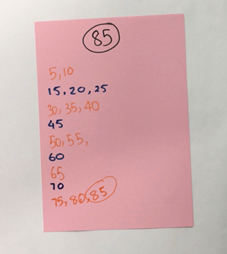 85
5,10
15, 20, 25
30, 35, 40
45
50, 55,
60
65
70
75, 80, 85